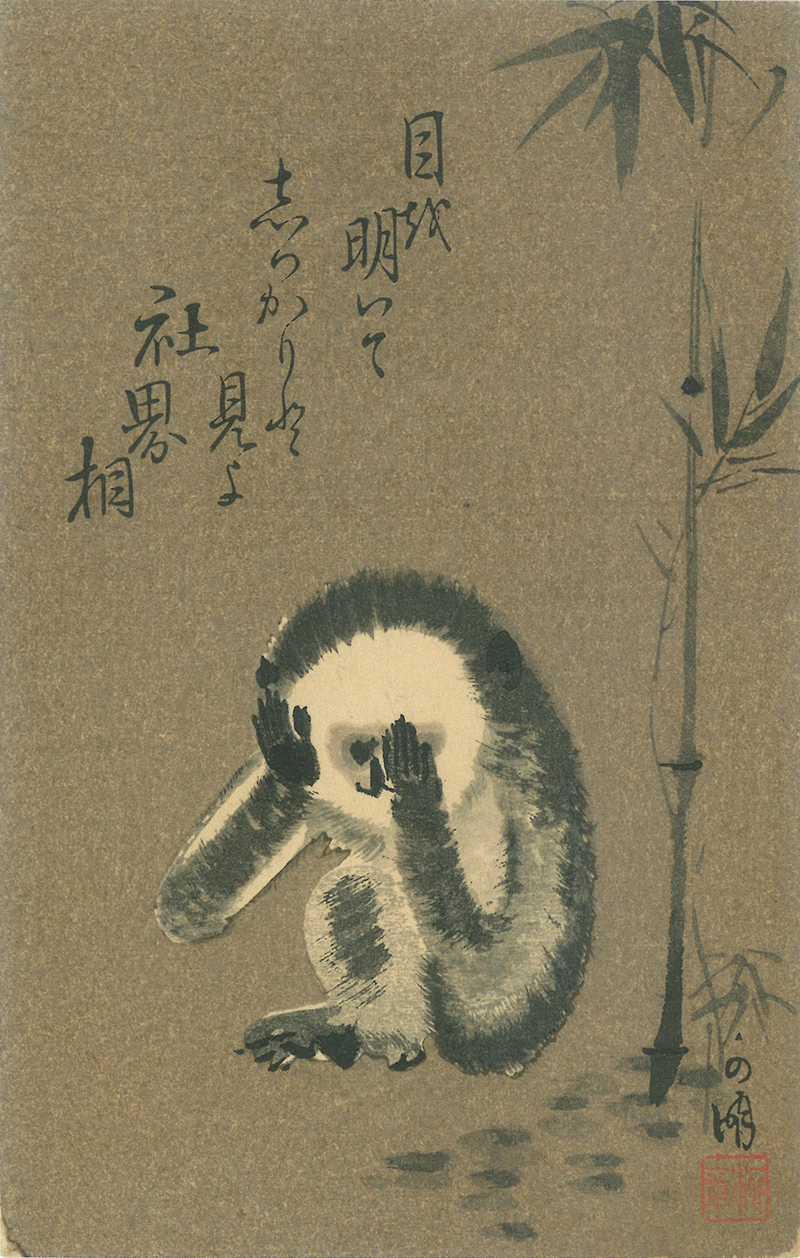 目を
明いて
志つかりと
見よ
社界
相